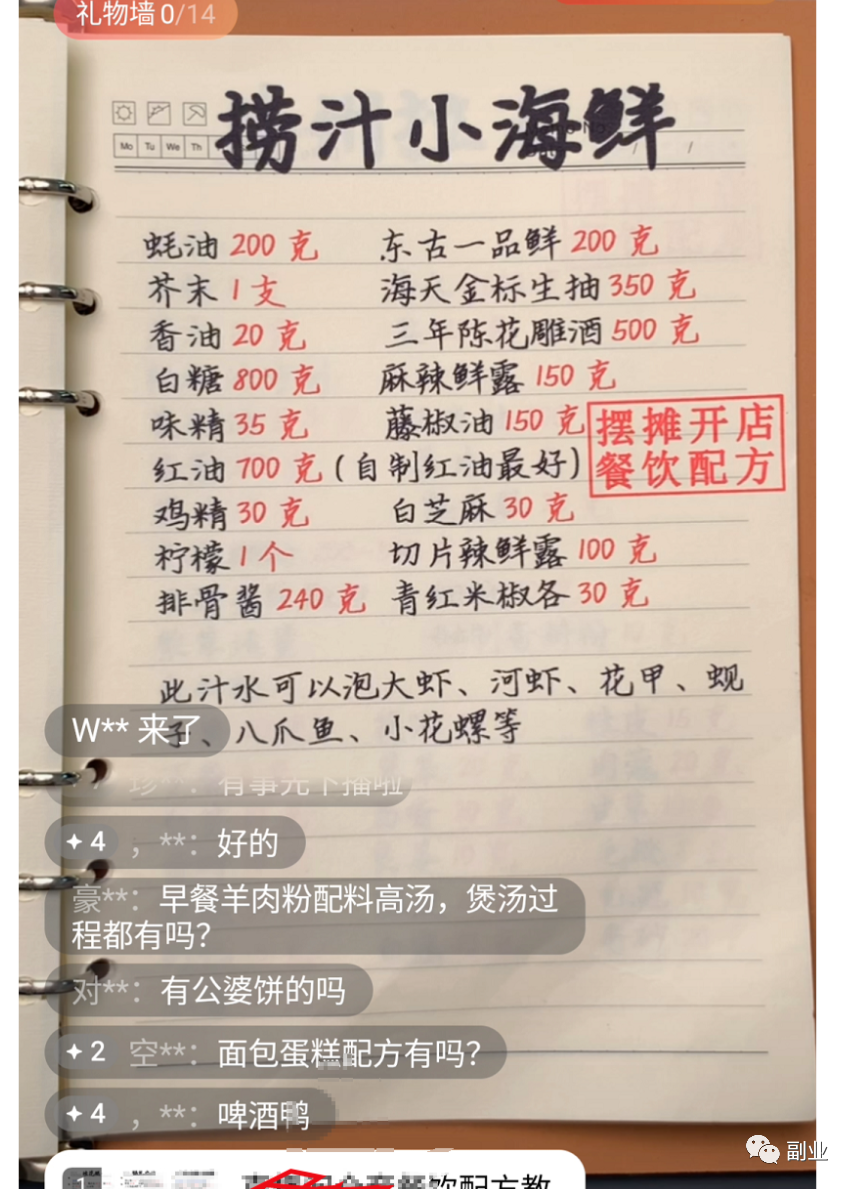 礼物墙0/14
捞汁小海鲜
Mo Tu We Th
蚝油 200 克 东古一品鲜 200 克
芥末 1 支 海天金标生抽 350 克
香油 20 克 三年陈花雕酒 500 克
白糖 800 克 麻辣鲜露 150 克
味精 35 克 藤椒油 150 克
摆摊开店
餐饮配方
红油 700 克 (自制红油最好)
鸡精 30 克 白芝麻 30 克
柠檬 1 个 切片辣鲜露 100 克
排骨酱 240 克 青红米椒各 30 克
此汁水可以泡大虾、河虾、花甲、蚬
子、八爪鱼、小花螺等
W** 来了
珍**：有事先下播啦
4 ，**：好的
豪**：早餐羊肉粉配料高汤，煲汤过
程都有吗？
对**：有公婆饼的吗
2 空**：面包蛋糕配方有吗？
4 ，**：啤酒鸭
副业
饮配方教